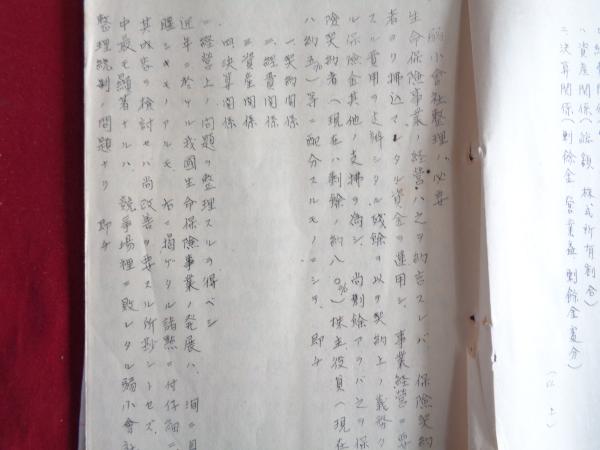 ハ資産関係(総額、株式所有割合)
ニ決算関係(剰餘金、営業益剰餘金處分)
(以上)
弱小會社整理ノ必要
生命保険事業ノ経営ハ之ヲ約言スレバ、保険契約
者ヨリ拂込マレタル資金ヲ運用シ、事業経営ニ要
スル費用ヲ支辨シタル残餘ヲ以テ契約上ノ義務タ
ル保険金其他ノ支拂ヲ為シ、尚剰餘アラバ之ヲ保
険契約者(現在ハ剰餘ノ約八〇%)株主役員(現在
ハ約 %)等ニ配分スルモノニシテ、即チ
一、契約関係
二、経費関係
三、資産関係
四、決算関係
ニ経営上ノ問題ヲ整理スルヲ得ベシ
近年ニ於ケル我國生命保険事業ノ発展ハ、洵ニ目
醒シキモノアルモ、右ニ掲ゲタル諸点ニ付仔細ニ
其内容ヲ検討セバ尚改善ヲ要スル所尠シトセズ、
中最モ顕著ナルハ、競争場裡ニ敗レタル弱小會社
整理統制ノ問題ナリ、即チ